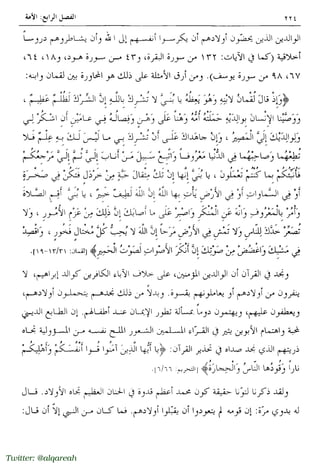 ٢٢٤ الفصل الرابع: الأمة
الوالدين الذين يحضّون أولادهم أن يكرسوا أنفسهم إلى الله وأن يشاطروهم دروساً
أخلاقية (كما في الآيات: ١٣٢ من سورة البقرة، و٤٣ من سورة هود، و١٨، ٦٤،
٦٧، ٩٨ من سورة يوسف). ومن أرق الأمثلة على ذلك هو المحاورة بين لقمان وابنه:
﴿وَإِذْ قَالَ لُقْمَانُ لابْنِهِ وَهُوَ يَعِظُهُ يَا بُنَيَّ لا تُشْرِكْ بِاللَّهِ إِنَّ الشِّرْكَ لَظُلْمٌ عَظِيمٌ،
وَوَصَّيْنَا الإِنْسَانَ بِوَالِدَيْهِ حَمَلَتْهُ أُمُّهُ وَهْنًا عَلَى وَهْنٍ وَفِصَالُهُ فِي عَامَيْنِ أَنِ اشْكُرْ لِي
وَلِوَالِدَيْكَ إِلَيَّ الْمَصِيرُ، وَإِنْ جَاهَدَاكَ عَلَى أَنْ تُشْرِكَ بِي مَا لَيْسَ لَكَ بِهِ عِلْمٌ فَلا
تُطِعْهُمَا وَصَاحِبْهُمَا فِي الدُّنْيَا مَعْرُوفًا وَاتَّبِعْ سَبِيلَ مَنْ أَنَابَ إِلَيَّ ثُمَّ إِلَيَّ مَرْجِعُكُمْ
فَأُنَبِّئُكُمْ بِمَا كُنْتُمْ تَعْمَلُونَ، يَا بُنَيَّ إِنَّهَا إِنْ تَكُ مِثْقَالَ حَبَّةٍ مِنْ خَرْدَلٍ فَتَكُنْ فِي صَخْرَةٍ
أَوْ فِي السَّماواتِ أَوْ فِي الأَرْضِ يَأْتِ بِهَا اللَّهُ إِنَّ اللَّهَ لَطِيفٌ خَبِيرٌ، يَا بُنَيَّ أَقِمِ الصَّلاةَ
وَأْمُرْ بِالْمَعْرُوفِ وَانْهَ عَنِ الْمُنْكَرِ وَاصْبِرْ عَلَى مَا أَصَابَكَ إِنَّ ذَلِكَ مِنْ عَزْمِ الأُمُورِ، وَلا
تُصَعِّرْ خَدَّكَ لِلنَّاسِ وَلا تَمْشِ فِي الأَرْضِ مَرَحًا إِنَّ اللَّهَ لا يُحِبُّ كُلَّ مُخْتَالٍ فَخُورٍ، وَاقْصِدْ
فِي مَشْيِكَ وَاغْضُضْ مِنْ صَوْتِكَ إِنَّ أَنْكَرَ الأَصْوَاتِ لَصَوْتُ الْحَمِيرِ﴾ [لقمان: ١٣/٣١-١٩].
ونجد في القرآن أن الوالدين المؤمنين، على خلاف الآباء الكافرين كوالد إبراهيم، لا
ينفرون من أولادهم أو يعاملونهم بقسوة. وبدلاً من ذلك نجدهم يتحملون أولادهم،
ويعطفون عليهم، ويهتمون دوماً بمسألة تطور الإيمان عند أطفالهم. إن الطابع الديني
لمحبة واهتمام الأبوين يثير في القراء المسلمين الشعور الملح نفسه من المسؤولية تجاه
ذريتهم الذي نجد صداه في تحذير القرآن: ﴿يا أَيُّها الَّذِينَ آمَنُوا قُوا أَنْفُسَكُمْ وَأَهْلِيكُمْ
ناراً وَقُودُها النّاسُ وَالْحِجارَةُ﴾ [التحريم: ٦/٦٦].
ولقد ذكرنا لتوّنا حقيقة كون محمد أعظم قدوة في الحنان العظيم تجاه الأولاد. قال
له بدوي مرّة: إن قومه لم يتعودوا أن يقبّلوا أولادهم. فما كان من النبي إلاّ أن قال:
Twitter: @alqareah